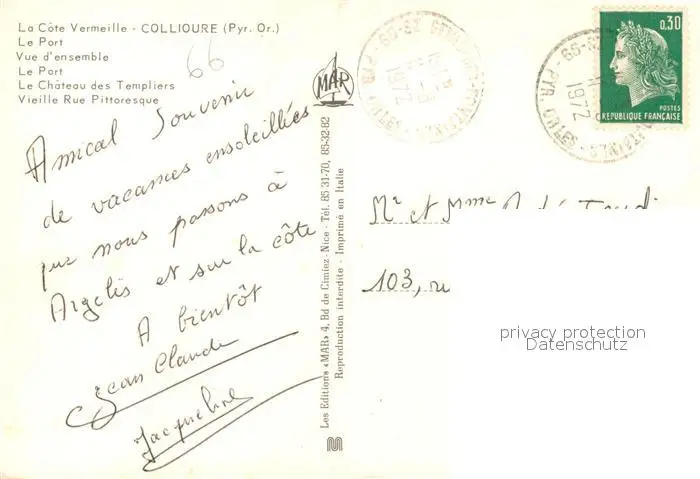 La Côte Vermeille - COLLIOURE (Pyr. Or.)
Le Port
Vue d'ensemble
Le Port
Le Château des Templiers
Vieille Rue Pittoresque
66
MAR
Amical Souvenir
de vacances ensoleillées
que nous passons à
Argelès et sur la côte
A bientôt
Jean Claude
Jacqueline
Les Editions «MAR» 4, Bd de Cimiez - Nice - Tél. 85-31-70, 85-32-82
Reproduction interdite - Imprimé en Italie
1972
1972
PYR. ORLES
0,30
POSTES
REPUBLIQUE FRANÇAISE
Mr et Mme
103,
privacy protection
Datenschutz